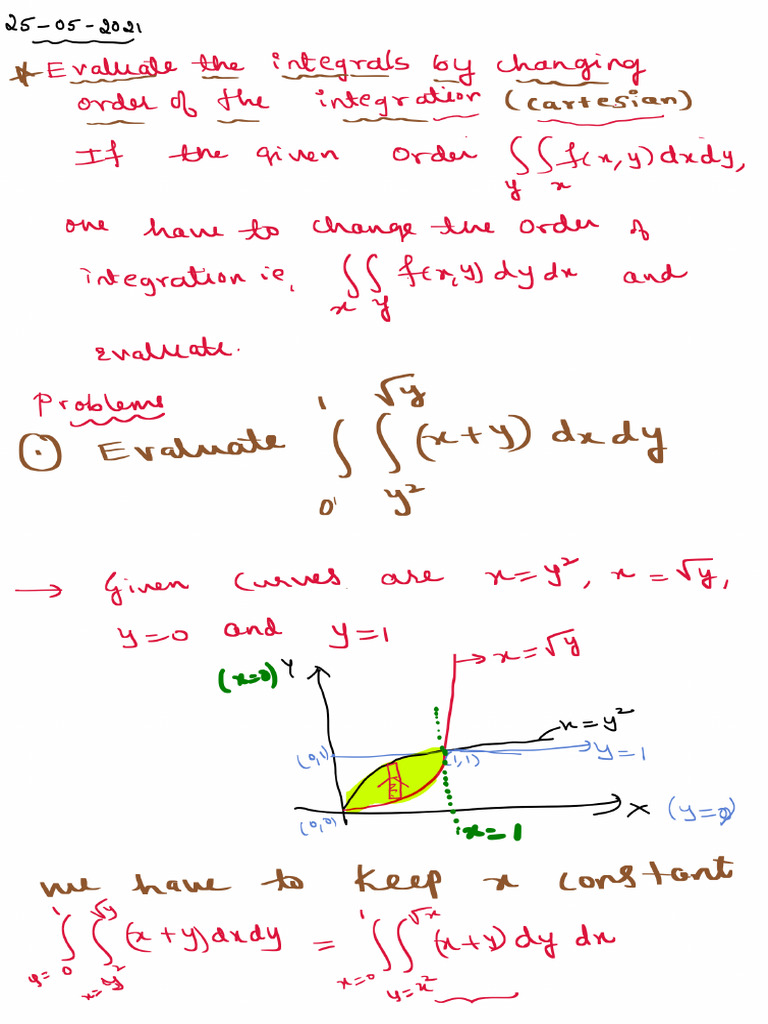 25-05-2021
* Evaluate the integrals by changing
order of the integration (cartesian)
If the given order ∫∫ f(x,y)dxdy,
y x
one have to change the order of
integration ie, ∫∫ f(x,y) dy dx and
x y
evaluate.
Problems
1 √y
① Evaluate ∫ ∫ (x+y) dx dy
0 y²
→ Given curves are x=y², x=√y,
y=0 and y=1
(x=0) Y → x=√y
x=y²
(0,1) (1,1) y=1
(0,0) X (y=0)
x=1
we have to keep x constant
1 √y 1 √x
∫ ∫ (x+y)dxdy = ∫ ∫ (x+y) dy dx
y=0 x=y² x=0 y=x²